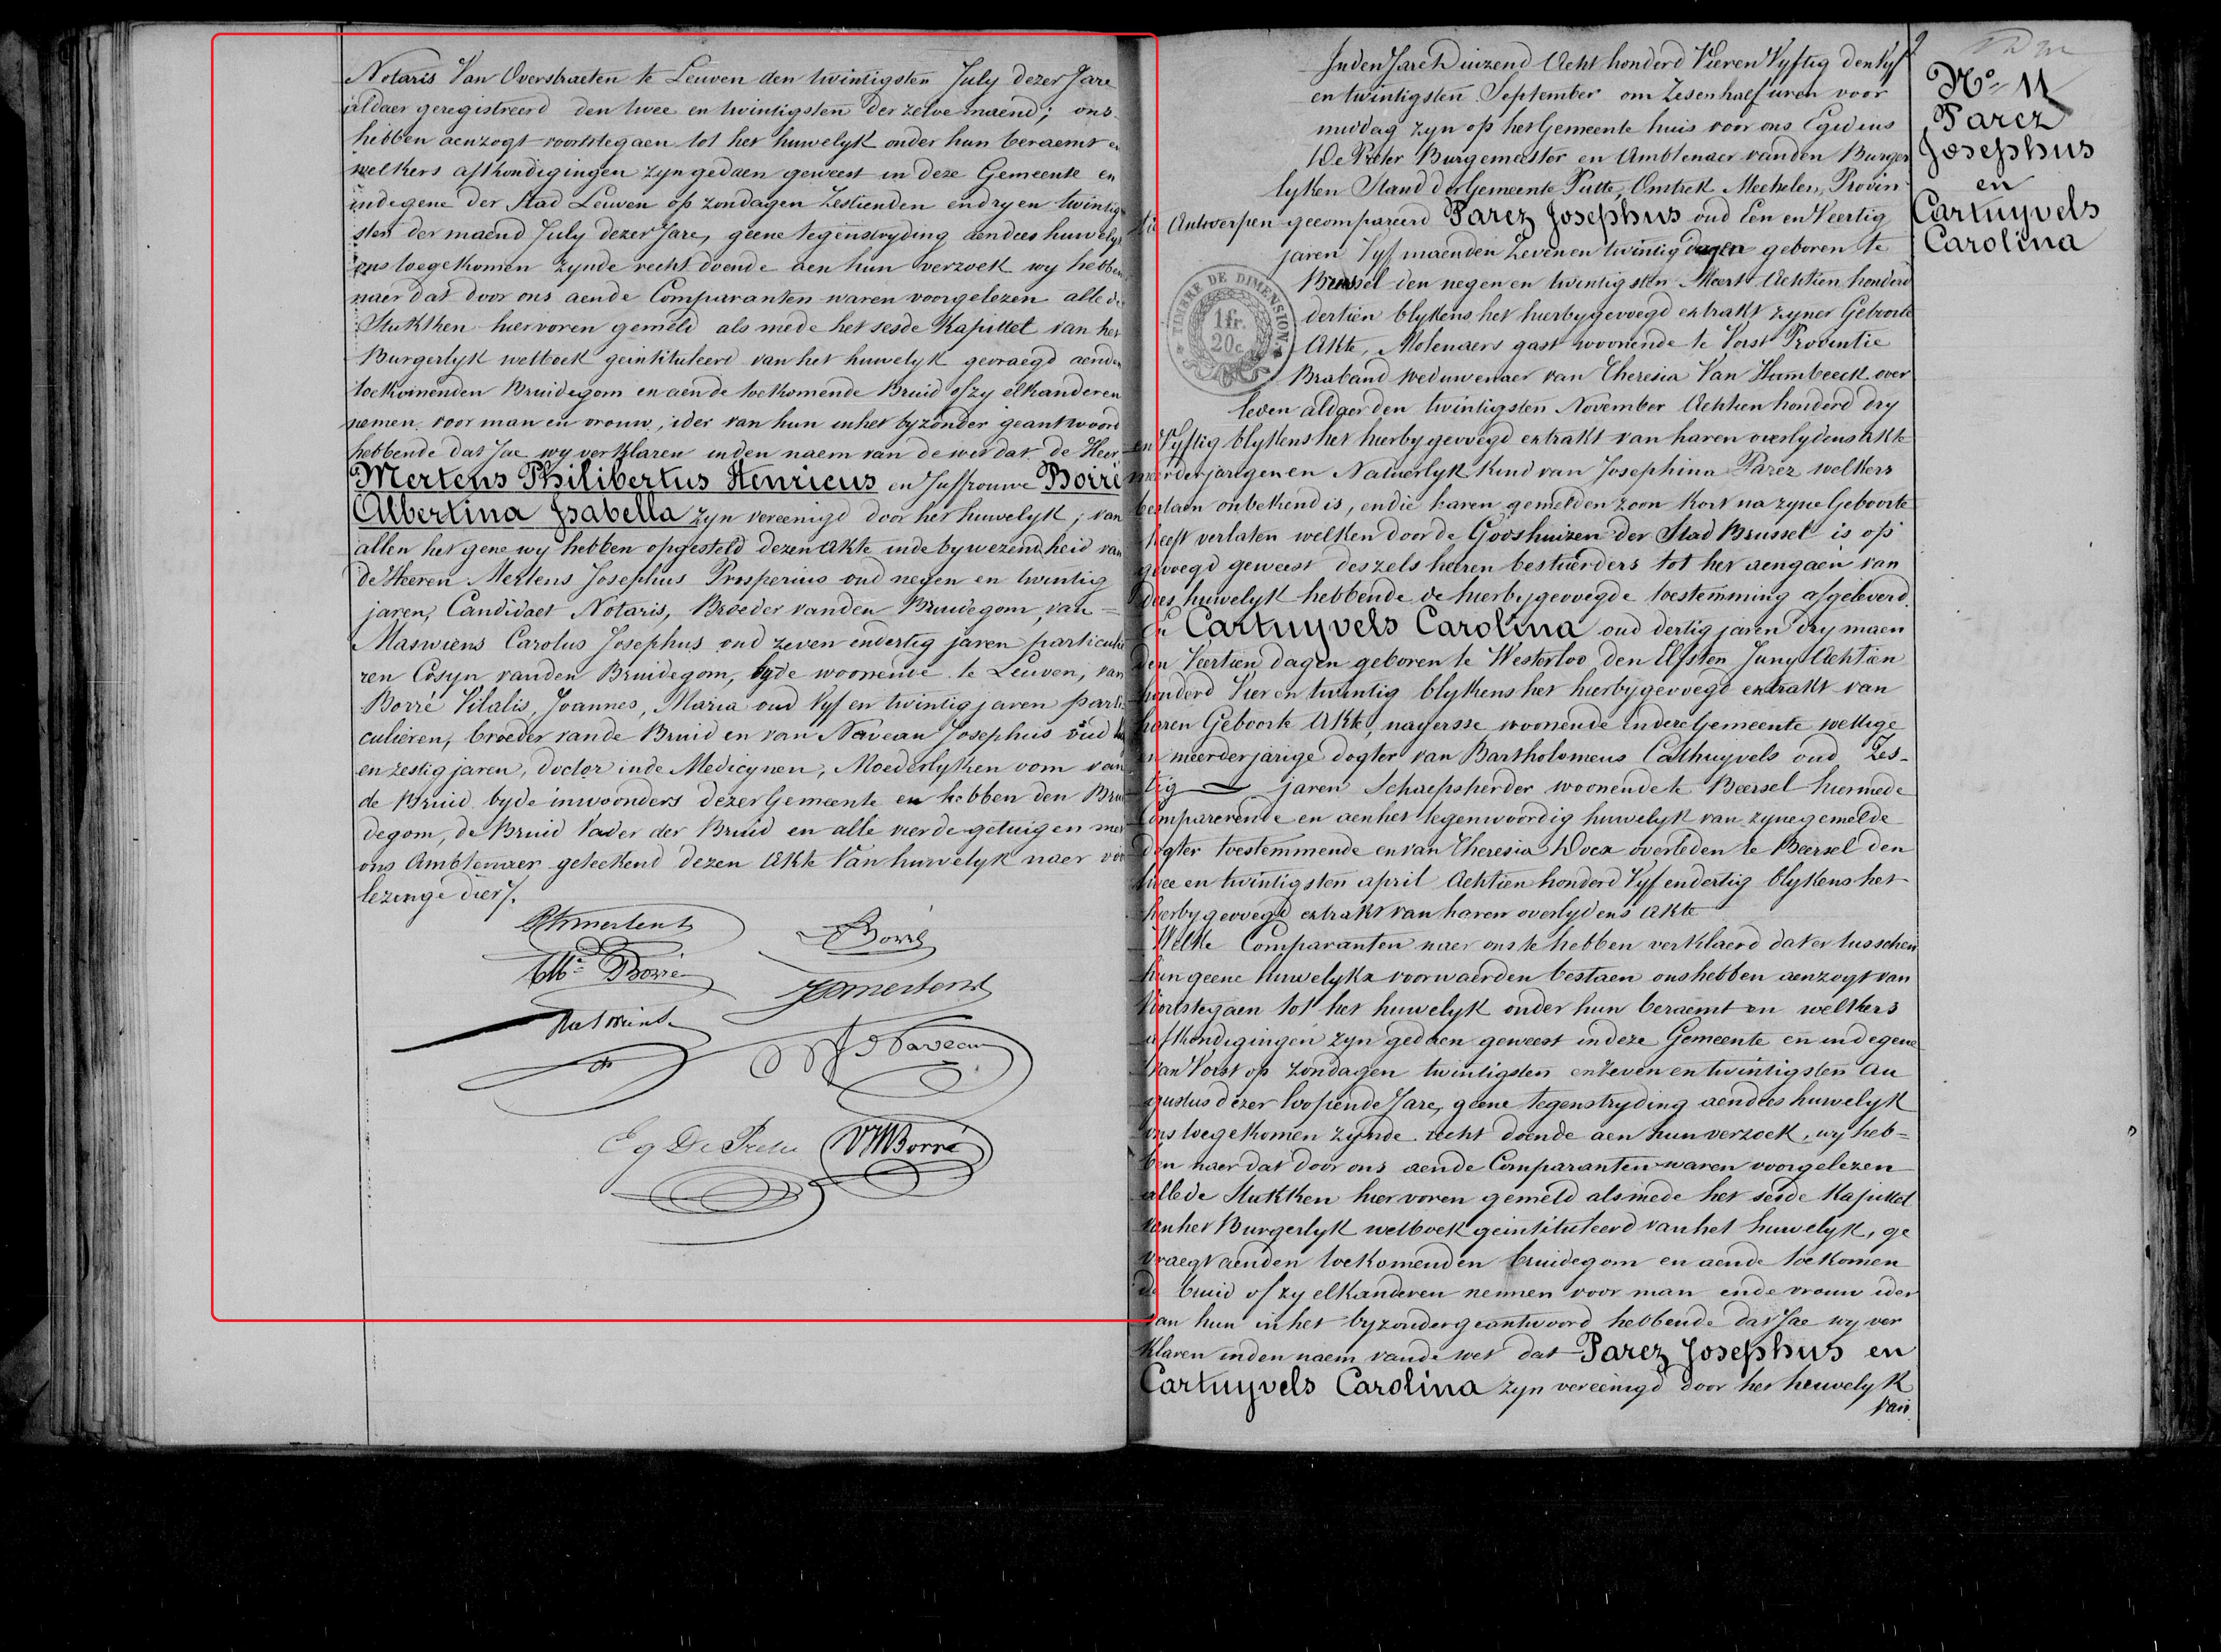 Notaris Van Overstraeten te Leuven den twintigsten July dezer Jare
aldaer geregistreerd den twee en twintigsten der zelve maend; ons
hebben aenzogt voortstegaen tot het huwelyk onder hun beraemt en
welkers afkondigingen zyn gedaen geweest in deze Gemeente en
indegene der Stad Leuven op zondagen Zestienden en dry en twintig
sten der maend July dezer Jare, geene tegenstryding aendees huwelyk
ons toegekomen zynde recht doende aen hun verzoek wy hebben
naer dat door ons aende Comparanten waren voorgelezen alle de
Stukken hiervoren gemeld als mede het sesde Kapittel van het
Burgerlyk wetboek geintituleerd van het huwelyk gevraegd aenden
toekomenden Bruidegom en aende toekomende Bruid of zy elkanderen
nemen voor man en vrouw, ider van hun inhet byzonder geantwoord
hebbende dat Jae wy verklaren inden naem van de wet dat de Heer
Mertens Philibertus Henricus en Juffrouwe Borré
Albertina Isabella zyn vereenigd door het huwelyk; van
allen het gene wy hebben opgesteld dezen Akte inde bywezendheid van
de Heeren Mertens Josephus Prosperius oud negen en twintig
jaren, Candidaet Notaris, Broeder vanden Bruidegom, van =
Maswiens Carolus Josephus oud zeven endertig jaren particulie
ren Cosyn vanden Bruidegom, byde woonende te Leuven, van
Borré Vitalis, Joannes, Maria oud Vyf en twintig jaren parti
culieren, broeder vande Bruid en van Naveau Josephus oud
en zestig jaren, doctor inde Medicynen, Moederlyken oom van
de Bruid byde inwoonders dezer Gemeente en hebben den Brui
degom, de Bruid Vader der Bruid en alle vier de getuigen met
ons Amblenaer geteekend dezen Akte Van huwelyk naer voor
lezinge dier /.
PHmertens
Borré
Alb.ne Borré
JPmertens
J Naveau
Eg De Preter
VJMBorré
In den Jare Duizend Acht honderd Vieren Vyftig den Vyf
en twintigsten September om Zesenhalf uren voor
middag zyn op het Gemeente huis voor ons Egidius
De Preter Burgemeester en Amblenaer vanden Burger
lyken Stand der Gemeente Putte, Omtrek Mechelen, Provin
tie Antwerpen gecompareerd Parez Josephus oud Een en Veertig
jaren Vyf maenden Zeven en twintig dagen geboren te
Brussel den negen en twintigsten Meert Achtien honderd
dertien blykens het hierbygevoegd extrakt zyner Geboorte
Akte, Molenaers gast woonende te Vorst Provintie
Braband weduwenaer van Theresia Van Humbeeck over
leden aldaer den twintigsten November Achtien honderd dry
en Vyftig blykens het hierby gevoegd extrakt van haren overlydens akte
meerderjarigen en Natuerlyk kind van Josephina Parez welkers
bestaen onbekend is, en die haren gemelden zoon kort na zyne Geboorte
heeft verlaten welken door de Godshuizen der Stad Brussel is op
gevoegd geweest deszels heeren bestierders tot het aengaen van
dees huwelyk hebbende de hierbygevoegde toestemming afgeleverd
En Cartuyvels Carolina oud dertig jaren dry maen
den Veertien dagen geboren te Westerloo den Elfsten Juny Achtien
honderd Vier en twintig blykens het hierbygevoegd extrakt van
haren Geboorte Akte, nayersse woonende indeze Gemeente wettige
en meerderjarige dogter van Bartholomeus Cathuyvels oud Zes-
tig jaren Schaepsherder woonende te Beersel hiermede
Comparerende en aenhet tegenwoordig huwelyk van zyne gemelde
dogter toestemmende en van Theresia Docx overleden te Beersel den
twee en twintigsten april Achtien honderd Vyf endertig blykens het
hierbygevoegd extrakt van haren overlydens Akte
Welke Comparanten naer ons te hebben verklaerd dat er tusschen
hun geene huwelyks voorwaerden bestaen ons hebben aenzogt van
voortstegaen tot het huwelyk onder hun beraemt en welkers
afkondigingen zyn gedaen geweest indeze Gemeente en indegene
van Vorst op Zondagen twintigsten enzeven en twintigsten Au
gustus dezer loopende Jare, geene tegenstryding aendees huwelyk
ons toegekomen zynde recht doende aen hun verzoek, wy heb=
ben naer dat door ons aende Comparanten waren voorgelezen
allede Stukken hier voren gemeld alsmede het sesde Kapittel
vanhet Burgerlyk wetboek geintituleerd vanhet huwelyk, ge
vraegt aenden toekomenden bruidegom en aende toekomen
de bruid of zy elkanderen nemen voor man ende vrouw ider
van hun inhet byzonder geantwoord hebbende dat Jae wy ver
klaren inden naem vande wet dat Parez Josephus en
Cartuyvels Carolina zyn vereenigd door het huwelyk
van
TIMBRE DE DIMENSION
1 fr.
20 c.
9
N° 11
Parez
Josephus
en
Cartuyvels
Carolina